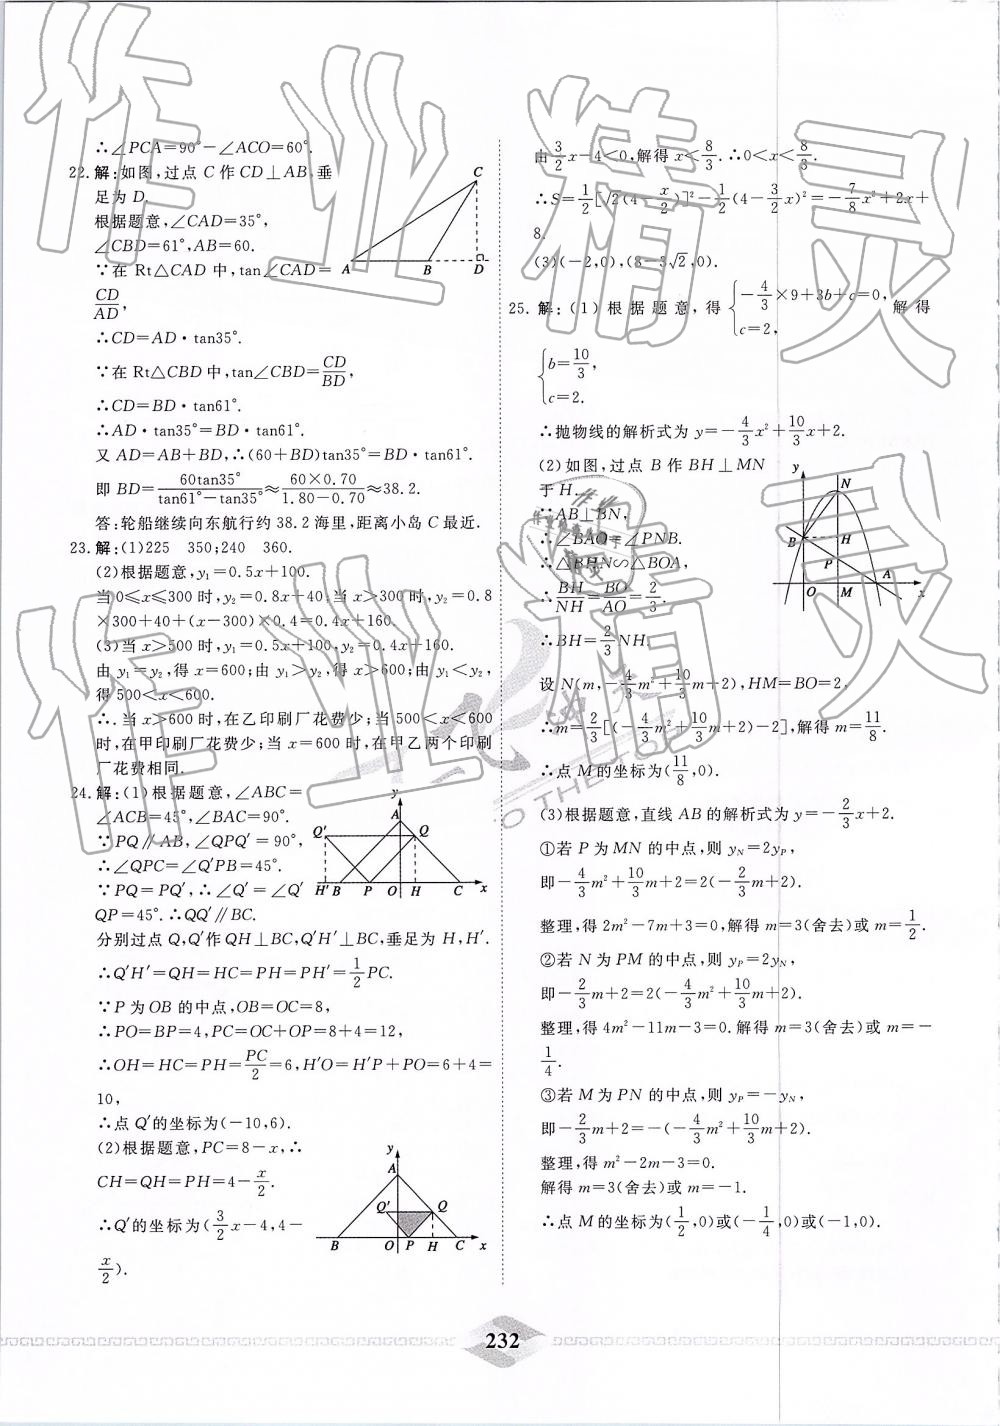 ∴∠PCA=90°-∠ACO=60°.
22. 解:如图,过点 C 作 CD⊥AB,垂
足为 D.
根据题意,∠CAD=35°,
∠CBD=61°,AB=60.
∵在 Rt△CAD 中,tan∠CAD=
CD/AD,
∴CD=AD·tan35°.
∵在 Rt△CBD 中,tan∠CBD=CD/BD,
∴CD=BD·tan61°.
∴AD·tan35°=BD·tan61°.
又 AD=AB+BD,∴(60+BD)tan35°=BD·tan61°.
即 BD=60tan35°/(tan61°-tan35°)≈(60×0.70)/(1.80-0.70)≈38.2.
答:轮船继续向东航行约 38.2 海里,距离小岛 C 最近.
C
A B D
23. 解:(1)225 350;240 360.
(2)根据题意,y₁=0.5x+100.
当0≤x≤300 时,y₂=0.8x+40;当 x>300 时,y₂=0.8
×300+40+(x-300)×0.4=0.4x+160.
(3)当 x>500 时,y₁=0.5x+100,y₂=0.4x+160.
由 y₁=y₂,得 x=600;由 y₁>y₂,得 x>600;由 y₁<y₂,
得 500<x<600.
∴当 x>600 时,在乙印刷厂花费少;当 500<x<600
时,在甲印刷厂花费少;当 x=600 时,在甲乙两个印刷
厂花费相同.
24. 解:(1)根据题意,∠ABC=
∠ACB=45°,∠BAC=90°.
∵PQ∥AB,∠QPQ′=90°,
∴∠QPC=∠Q′PB=45°.
∵PQ=PQ′,∴∠Q′=∠Q′
QP=45°.∴QQ′∥BC.
y
A
Q′ Q
H′ B P O H C x
分别过点 Q,Q′作 QH⊥BC,Q′H′⊥BC,垂足为 H,H′.
∴Q′H′=QH=HC=PH=PH′=1/2PC.
∵P 为 OB 的中点,OB=OC=8,
∴PO=BP=4,PC=OC+OP=8+4=12,
∴OH=HC=PH=PC/2=6,H′O=H′P+PO=6+4=
10,
∴点 Q′的坐标为(-10,6).
(2)根据题意,PC=8-x,∴
CH=QH=PH=4-x/2.
∴Q′的坐标为(3/2x-4,4-
x/2).
y
A
Q′ Q
B O P H C x
由3/2x-4<0,解得 x<8/3.∴0<x<8/3.
∴S=1/2[√2(4-x/2)]²-1/2(4-3/2x)²=-7/8x²+2x+
8.
(3)(-2,0),(8-3√2,0).
25. 解:(1)根据题意,得{-4/3×9+3b+c=0, c=2, 解得
{b=10/3, c=2.
∴抛物线的解析式为 y=-4/3x²+10/3x+2.
(2)如图,过点 B 作 BH⊥MN
于 H.
∵AB⊥BN,
∴∠BAO=∠PNB.
∴△BHN∽△BOA,
∴BH/NH=BO/AO=2/3.
∴BH=2/3NH.
y
N
B H
P A
O M x
设 N(m,-4/3m²+10/3m+2),HM=BO=2,
∴m=2/3[(-4/3m²+10/3m+2)-2],解得 m=11/8.
∴点 M 的坐标为(11/8,0).
(3)根据题意,直线 AB 的解析式为 y=-2/3x+2.
①若 P 为 MN 的中点,则 yN=2yP,
即-4/3m²+10/3m+2=2(-2/3m+2),
整理,得 2m²-7m+3=0,解得 m=3(舍去)或 m=1/2.
②若 N 为 PM 的中点,则 yP=2yN,
即-2/3m+2=2(-4/3m²+10/3m+2),
整理,得 4m²-11m-3=0.解得 m=3(舍去)或 m=-
1/4.
③若 M 为 PN 的中点,则 yP=-yN,
即-2/3m+2=-(-4/3m²+10/3m+2).
整理,得 m²-2m-3=0.
解得 m=3(舍去)或 m=-1.
∴点 M 的坐标为(1/2,0)或(-1/4,0)或(-1,0).
232
作业精灵
作业精灵